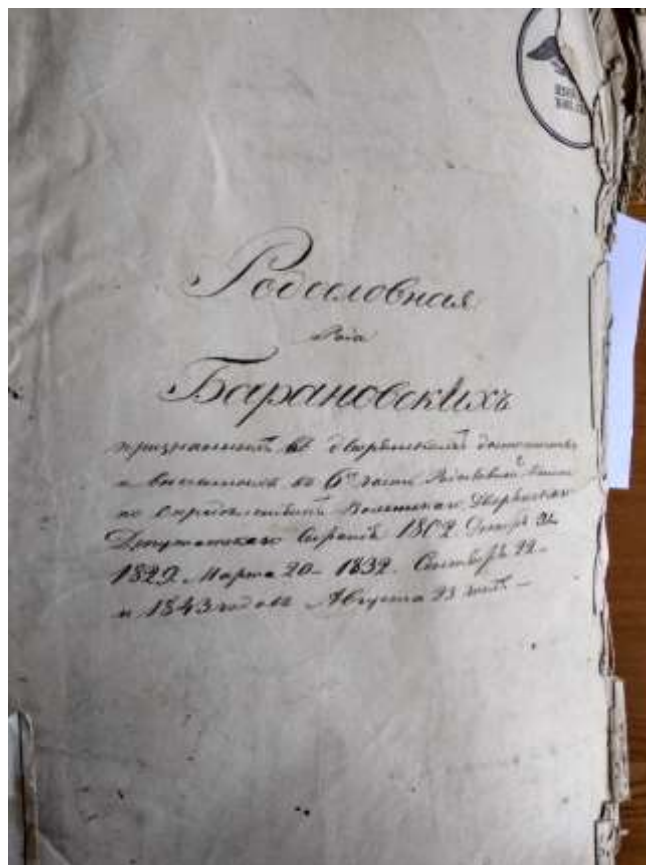 Родословная
Рода
Барановскихъ
признанныхъ въ дворянскомъ достоинствѣ
и внесенныхъ въ 6ю часть Родословной Книги
по опредѣленіямъ Волынскаго Дворянскаго
Депутатскаго Собранія 1802. 31.
1829. Марта 20 – 1832. Сентябр. 22 –
и 1843 годовъ Августа 23 –